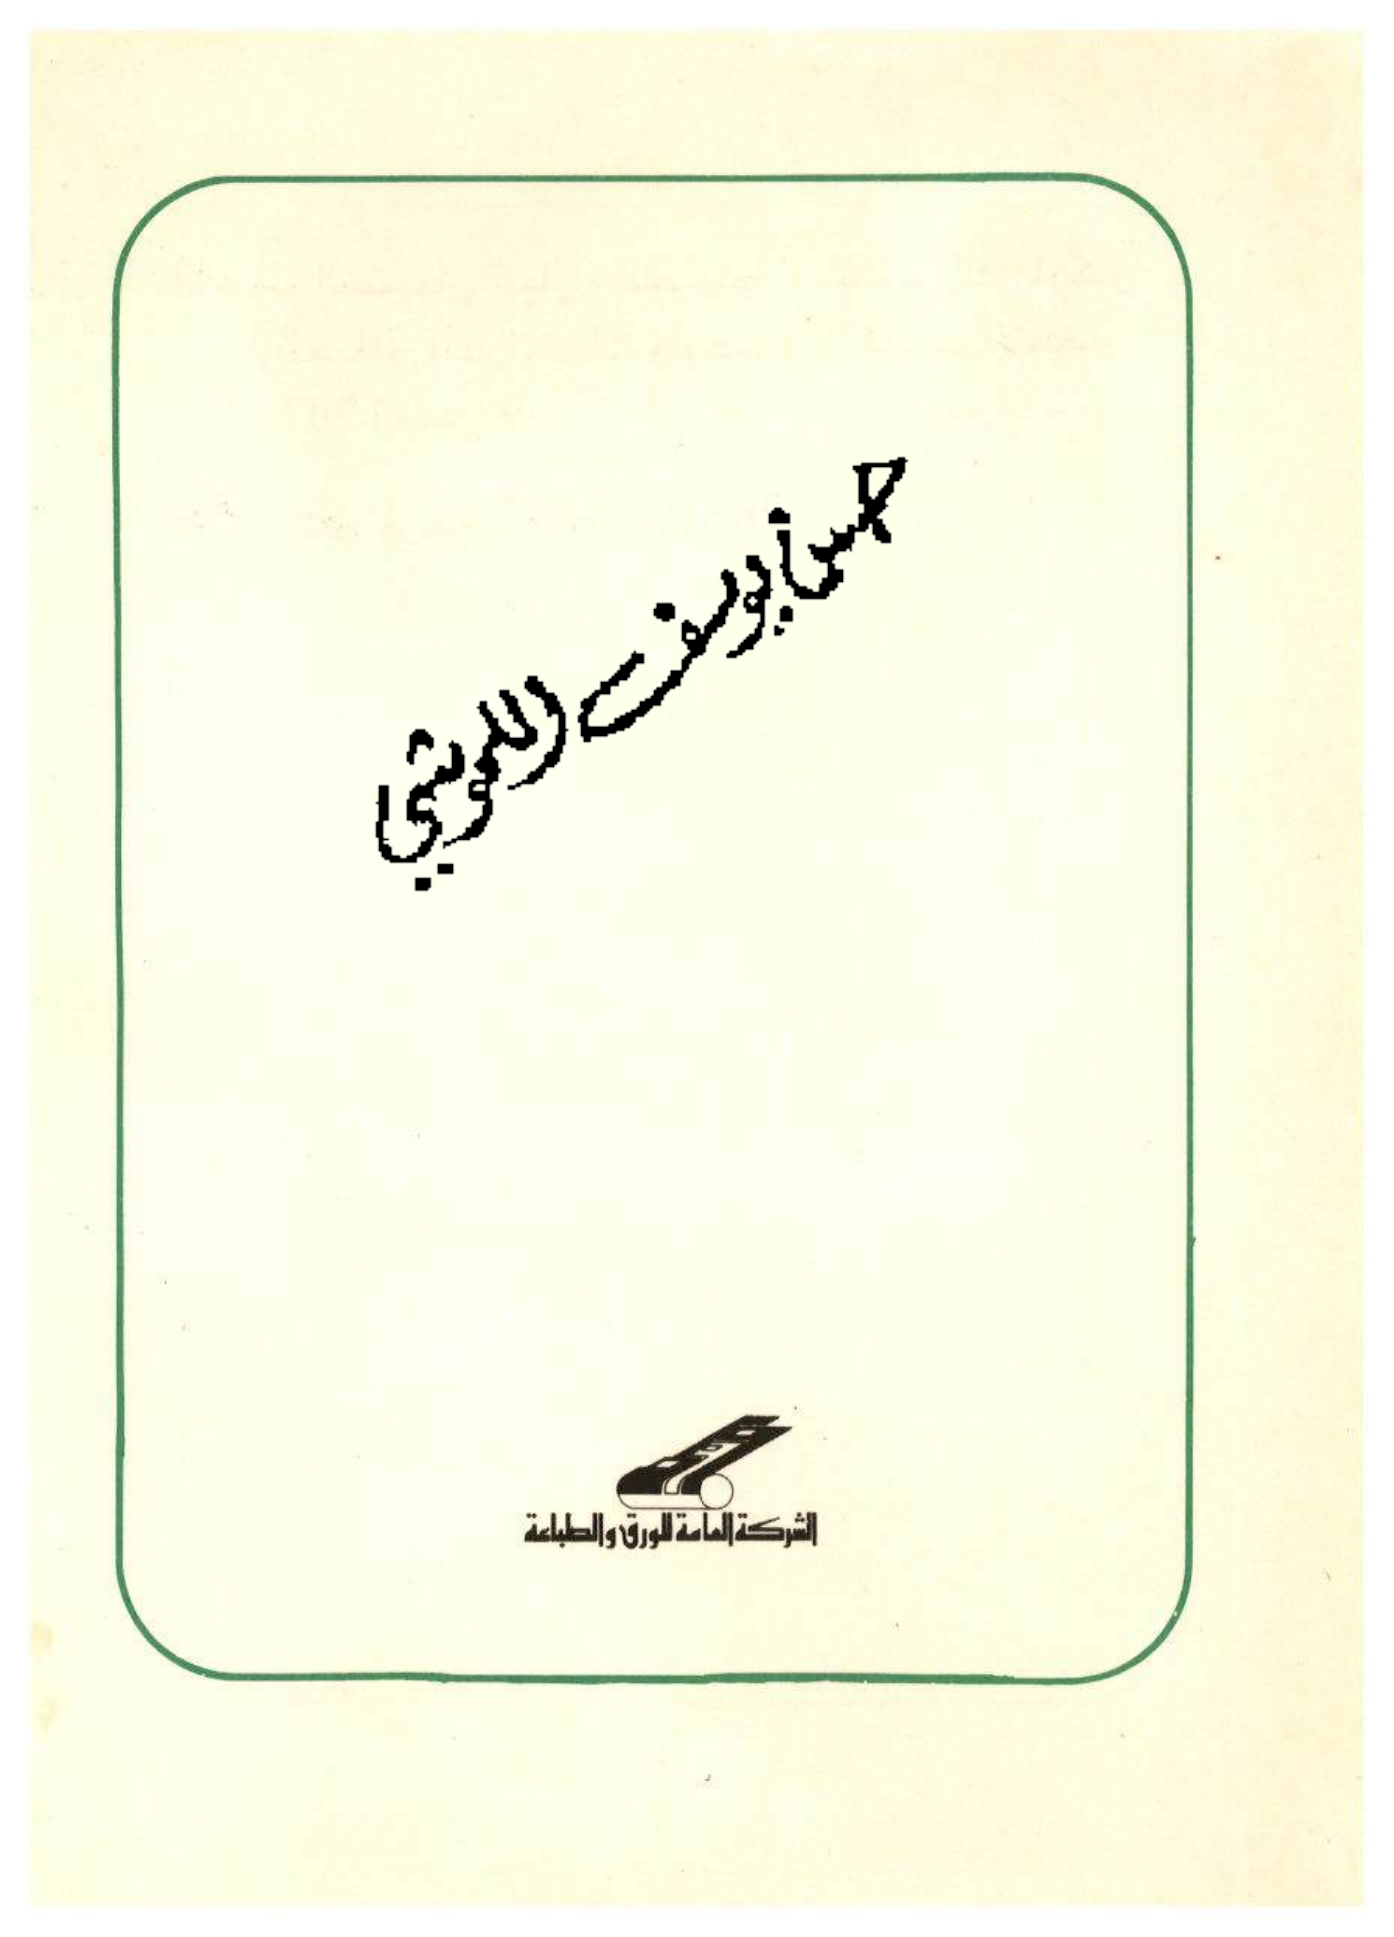 حسن يوسف اللموشي
الشركة العامة للورق والطباعة